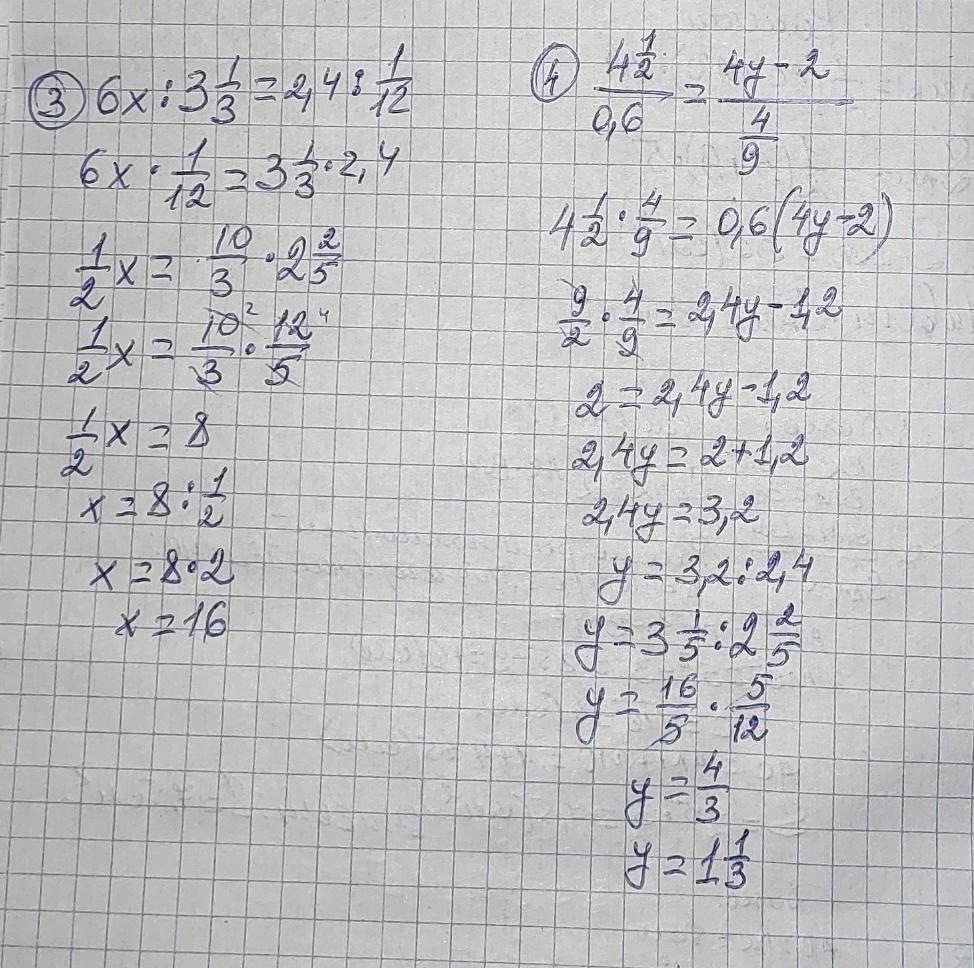 ③ 6x : 3 1/3 = 2,4 : 1/12
6x · 1/12 = 3 1/3 · 2,4
1/2 x = 10/3 · 2 2/5
1/2 x = 10/3 ² · 12/5 ⁴
1/2 x = 8
x = 8 : 1/2
x = 8 · 2
x = 16
④ (4 1/2)/(0,6) = (4y - 2)/(4/9)
4 1/2 · 4/9 = 0,6(4y - 2)
9/2 · 4/9 = 2,4y - 1,2
2 = 2,4y - 1,2
2,4y = 2 + 1,2
2,4y = 3,2
y = 3,2 : 2,4
y = 3 1/5 : 2 2/5
y = 16/5 · 5/12
y = 4/3
y = 1 1/3